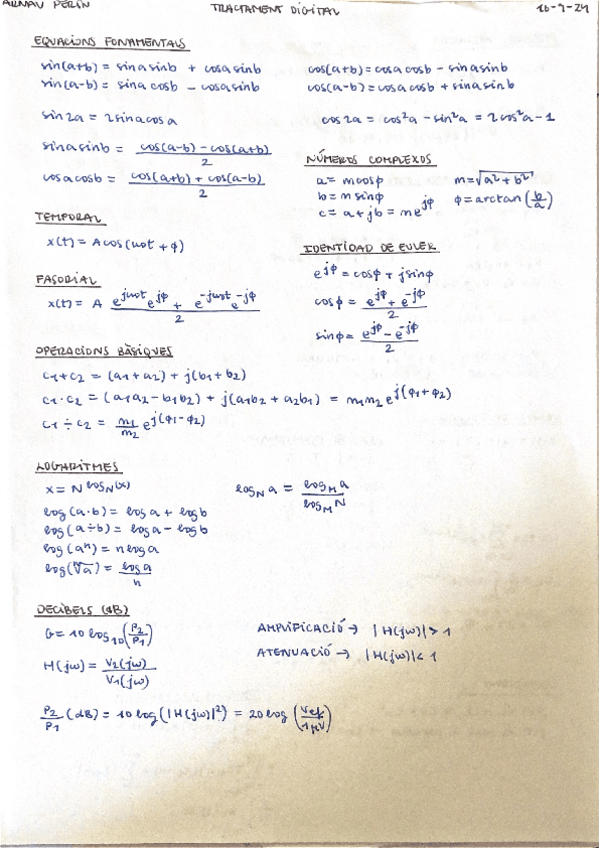 ARNAU PERÍN TRACTAMENT DIGITAL 16-9-24
EQUACIONS FONAMENTALS
sin(a+b) = sina sinb + cosa sinb cos(a+b) = cosa cosb - sina sinb
sin(a-b) = sina cosb - cosa sinb cos(a-b) = cosa cosb + sina sinb
sin2a = 2sina cosa cos2a = cos²a - sin²a = 2cos²a - 1
sina sinb = \frac{cos(a-b) - cos(a+b)}{2}
cosa cosb = \frac{cos(a+b) + cos(a-b)}{2}
NÚMEROS COMPLEXOS
a = m cosϕ m = \sqrt{a² + b²}
b = m sinϕ ϕ = arctan(\frac{b}{a})
c = a + jb = m e^{jϕ}
TEMPORAL
x(t) = A cos(ω0t + ϕ)
IDENTIDAD DE EULER
e^{jϕ} = cosϕ + j sinϕ
cosϕ = \frac{e^{jϕ} + e^{-jϕ}}{2}
sinϕ = \frac{e^{jϕ} - e^{-jϕ}}{2}
FASORIAL
x(t) = A \frac{e^{jω0t} e^{jϕ} + e^{-jω0t} e^{-jϕ}}{2}
OPERACIONS BÀSIQUES
c1 + c2 = (a1 + a2) + j(b1 + b2)
c1 · c2 = (a1a2 - b1b2) + j(a1b2 + a2b1) = m1m2 e^{j(ϕ1 + ϕ2)}
c1 ÷ c2 = \frac{m1}{m2} e^{j(ϕ1 - ϕ2)}
LOGARITMES
x = N^{log_N(x)} log_N a = \frac{log_M a}{log_M N}
log(a·b) = log a + log b
log(a÷b) = log a - log b
log(aⁿ) = n log a
log(\sqrt[n]{a}) = \frac{log a}{n}
DECIBELS (dB)
G = 10 log_{10}(\frac{P2}{P1}) AMPLIFICACIÓ → |H(jω)| > 1
H(jω) = \frac{V2(jω)}{V1(jω)} ATENUACIÓ → |H(jω)| < 1
\frac{P2}{P1} (dB) = 10 log(|H(jω)|²) = 20 log(\frac{Vef}{1μV})